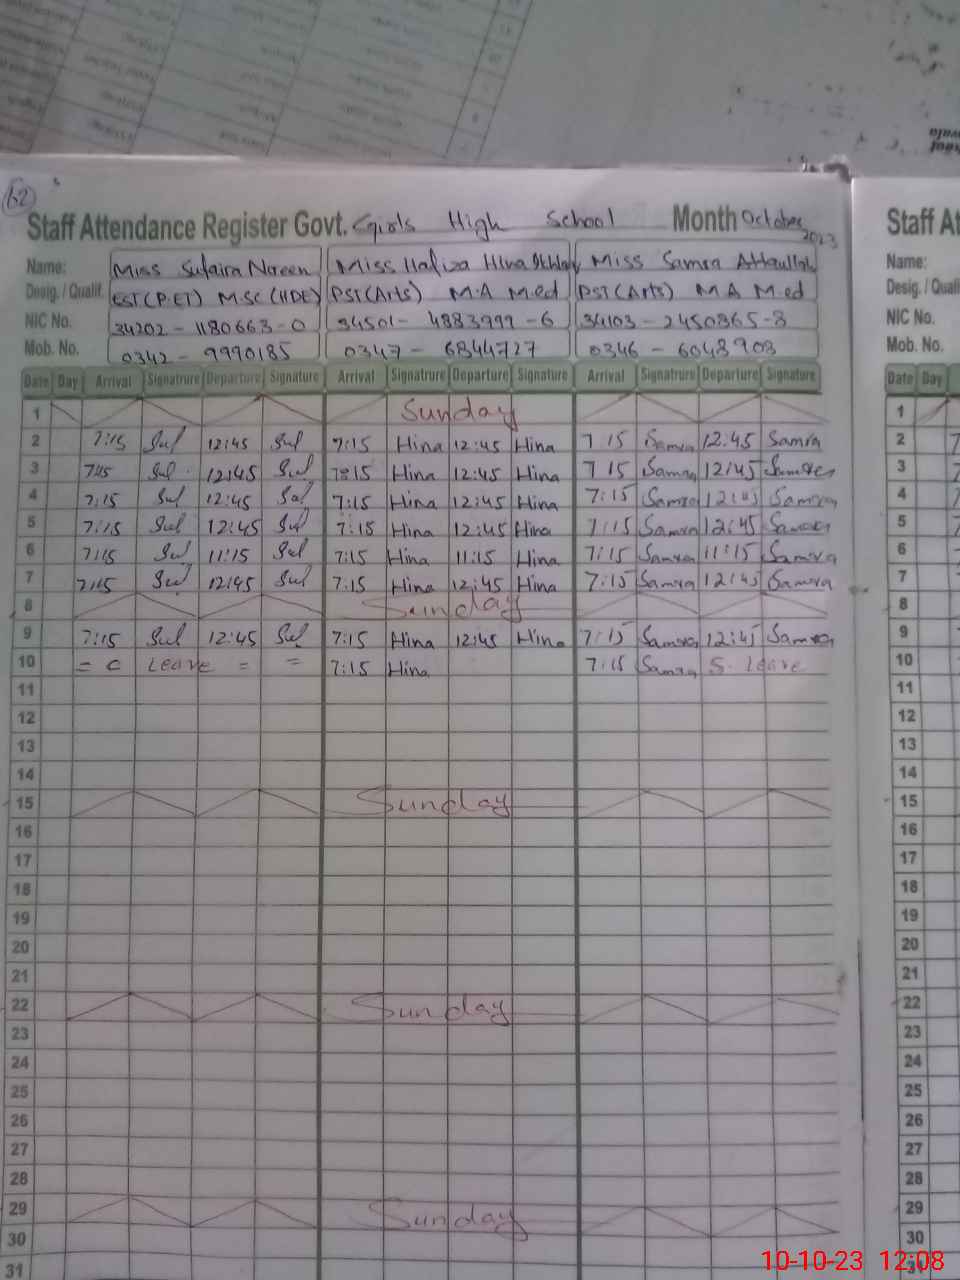 62
Staff Attendance Register Govt. Girls High School Month October 2023
Name: Miss Sufaira Noreen Miss Hafiza Hina Miss Samra Attaullah
Desig. / Qualif. EST(P.ET) M.SC (HDE) PST(Arts) M.A M.ed PST(Arts) M A M.ed
NIC No. 34202 - 1180663-0 34501- 4883999 -6 34103 - 2450865-8
Mob. No. 0342 - 9990185 0347 - 6844727 0346 - 6048908
Date Day Arrival Signatrure Departure Signature Arrival Signatrure Departure Signature Arrival Signatrure Departure Signature
1 Sunday
2 7:15 Sul 12:45 Sul 7:15 Hina 12:45 Hina 7 15 Samra 12:45 Samra
3 7:15 Sul 12:45 Sul 7:15 Hina 12:45 Hina 7 15 Samra 12:45 Samra
4 7:15 Sul 12:45 Sul 7:15 Hina 12:45 Hina 7:15 Samra 12:45 Samra
5 7:15 Sul 12:45 Sul 7:15 Hina 12:45 Hina 7:15 Samra 12:45 Samra
6 7:15 Sul 11:15 Sul 7:15 Hina 11:15 Hina 7:15 Samra 11:15 Samra
7 7:15 Sul 12:45 Sul 7:15 Hina 12:45 Hina 7:15 Samra 12:45 Samra
8 Sunday
9 7:15 Sul 12:45 Sul 7:15 Hina 12:45 Hina 7:15 Samra 12:45 Samra
10 = C Leave = = 7:15 Hina 7:15 Samra S. Leave
11
12
13
14
15 Sunday
16
17
18
19
20
21
22 Sunday
23
24
25
26
27
28
29 Sunday
30
31
Staff At
Name:
Desig. / Quali
NIC No.
Mob. No.
Date Day
1
2 7
3 7
4 7
5 7
6 7
7 7
8
9 7
10 7
11
12
13
14
15
16
17
18
19
20
21
22
23
24
25
26
27
28
29
30
10-10-23 12:08